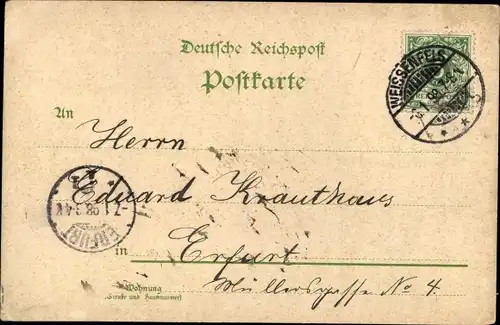 Deutsche Reichspost
Postkarte
WEISSENFELS
98
An
Herrn
Eduard Krauthaus
ERFURT
7.1.98
in Erfurt
Wohnung
(Straße und Hausnummer)
Müllersgasse No 4